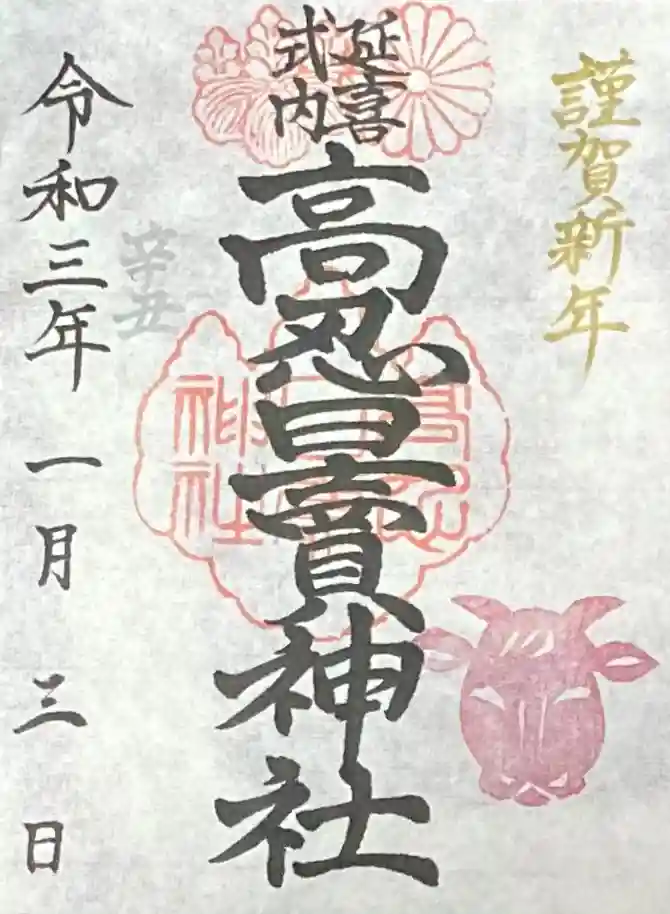 謹賀新年
延喜
式内
高忍日賣神社
辛丑
令和三年 一月 三 日
神社